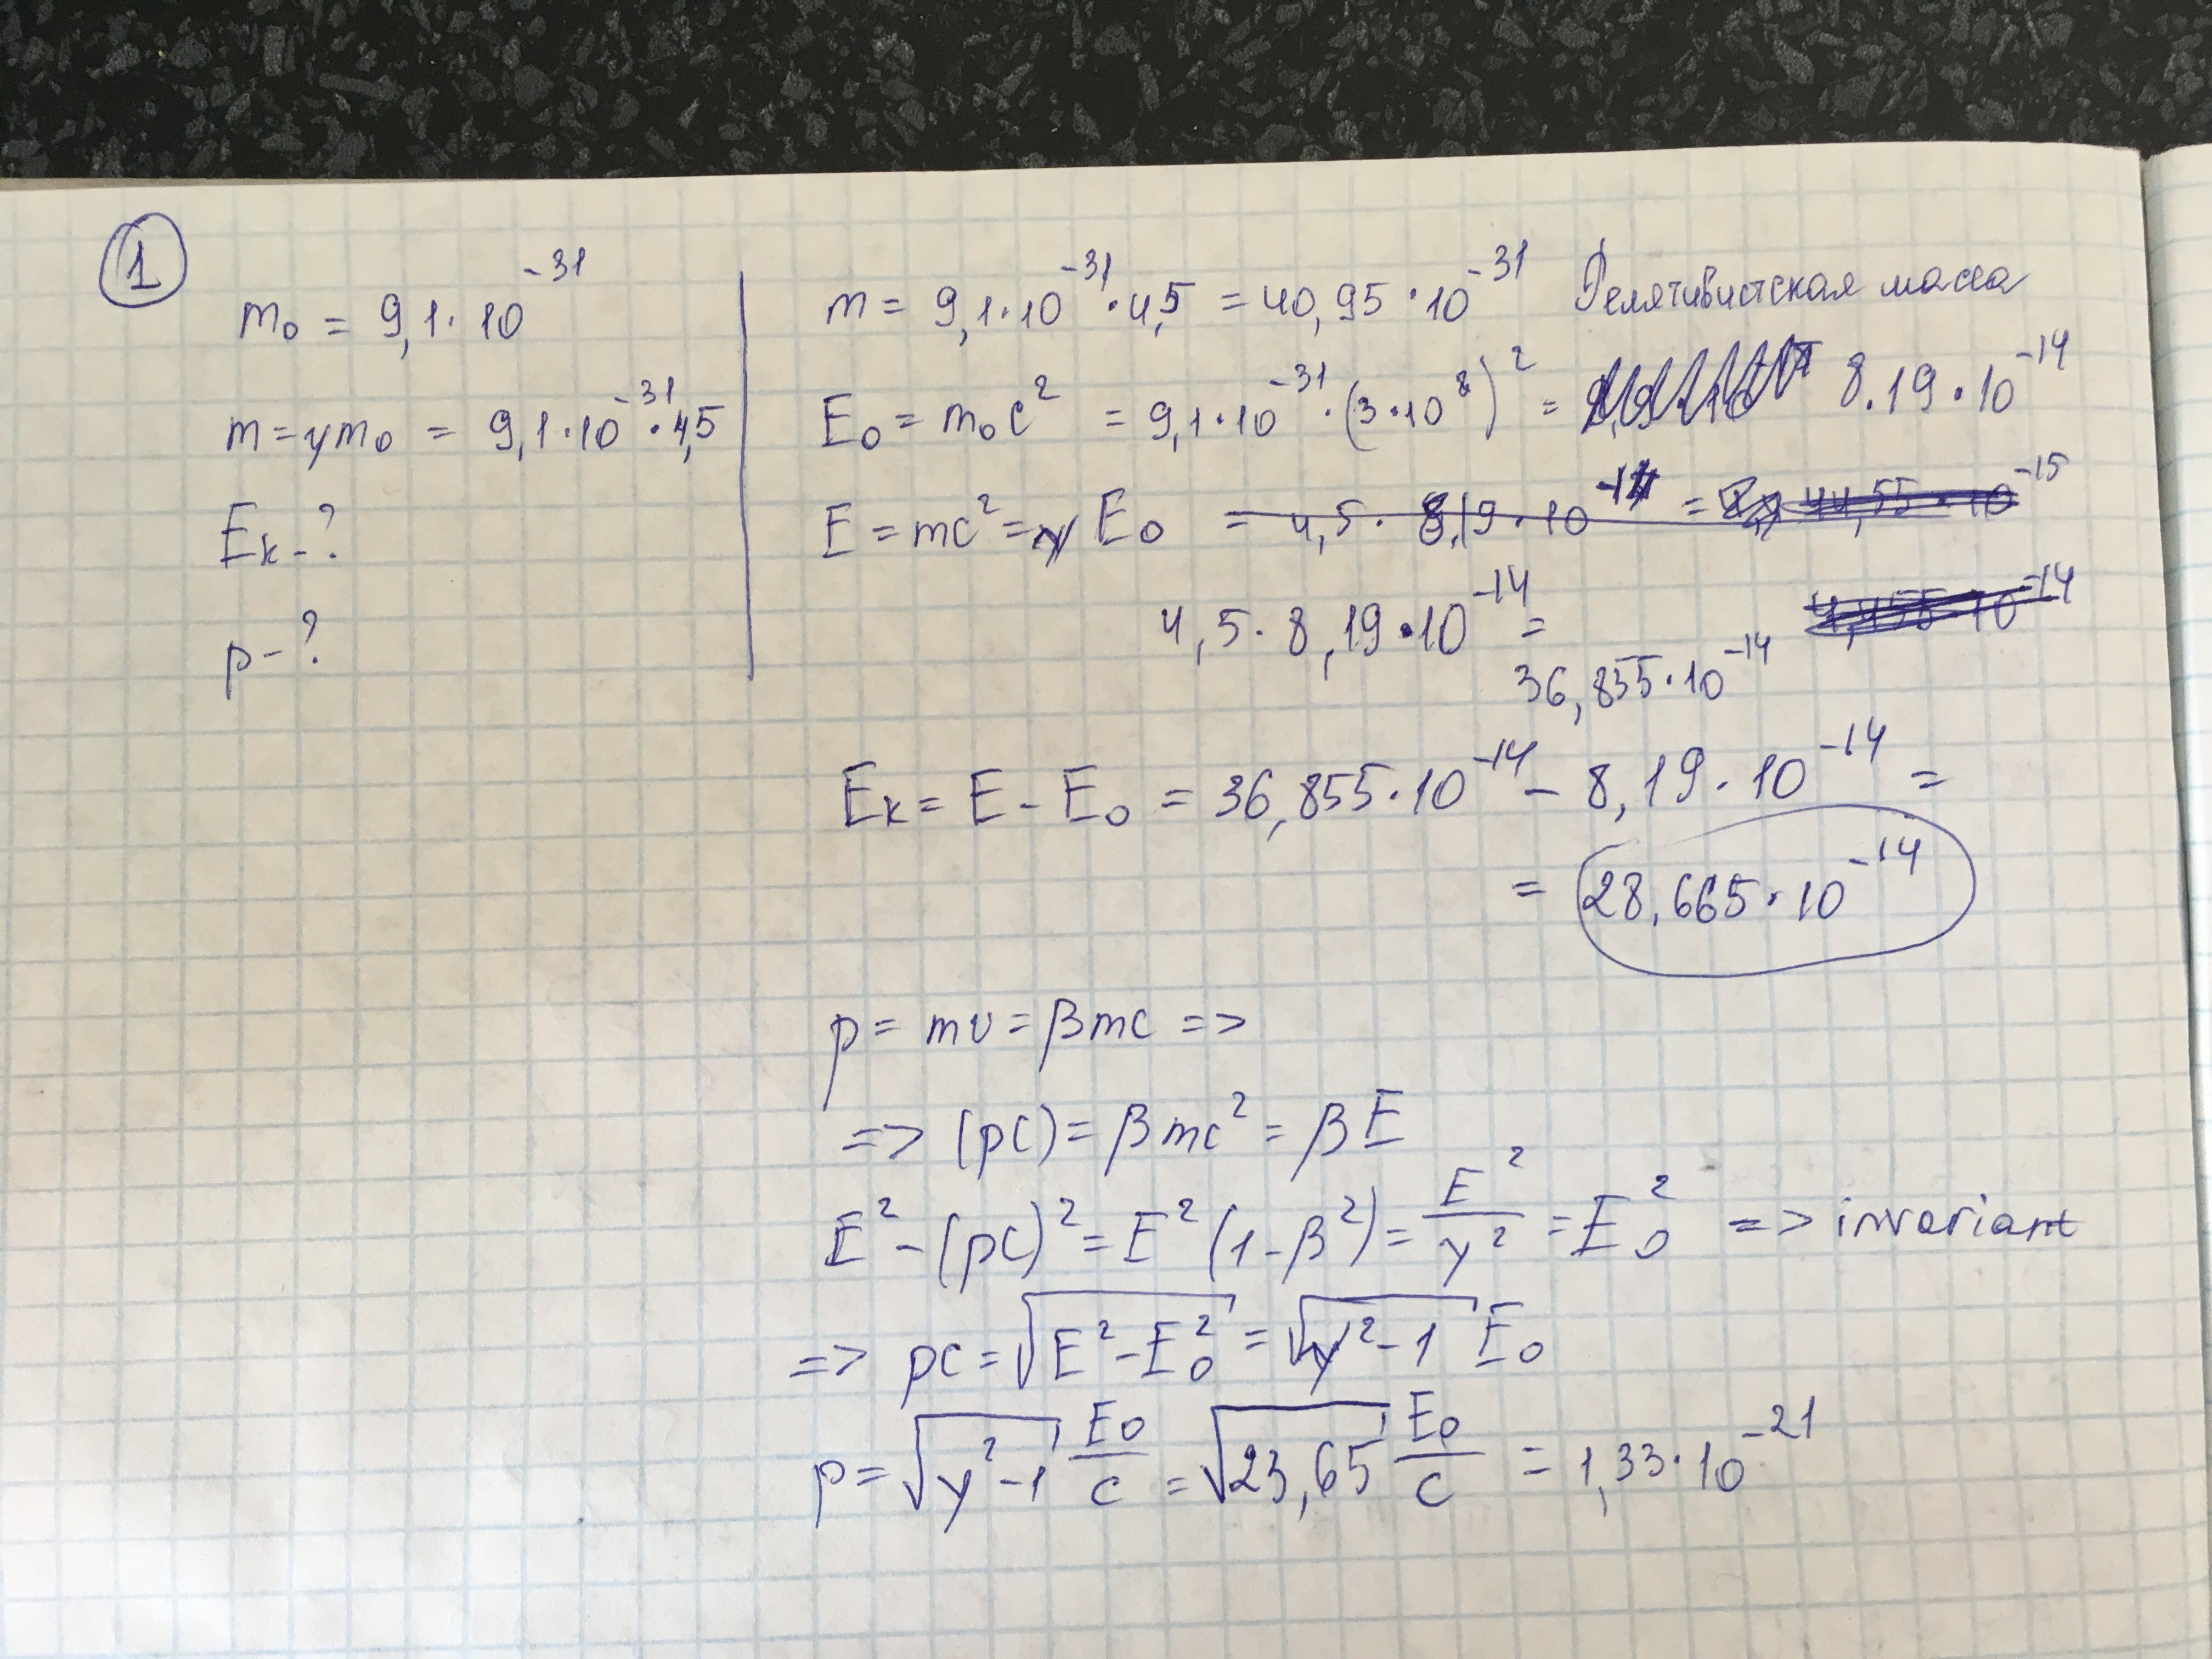 1
m₀ = 9,1·10⁻³¹
m = γm₀ = 9,1·10⁻³¹·4,5
Eк - ?
p - ?
m = 9,1·10⁻³¹·4,5 = 40,95·10⁻³¹ Релятивистская масса
E₀ = m₀c² = 9,1·10⁻³¹·(3·10⁸)² = 8.19·10⁻¹⁴
E = mc² = γE₀ = 4,5·8,19·10⁻¹⁴ =
4,5·8,19·10⁻¹⁴ =
36,855·10⁻¹⁴
Eк = E - E₀ = 36,855·10⁻¹⁴ - 8,19·10⁻¹⁴ =
= 28,665·10⁻¹⁴
p = mv = βmc =>
=> (pc) = βmc² = βE
E² - (pc)² = E²(1-β²) = E²/γ² = E₀² => invariant
=> pc = √(E² - E₀²) = √(γ² - 1) E₀
p = √(γ² - 1) E₀/c = √23,65 E₀/c = 1,33·10⁻²¹